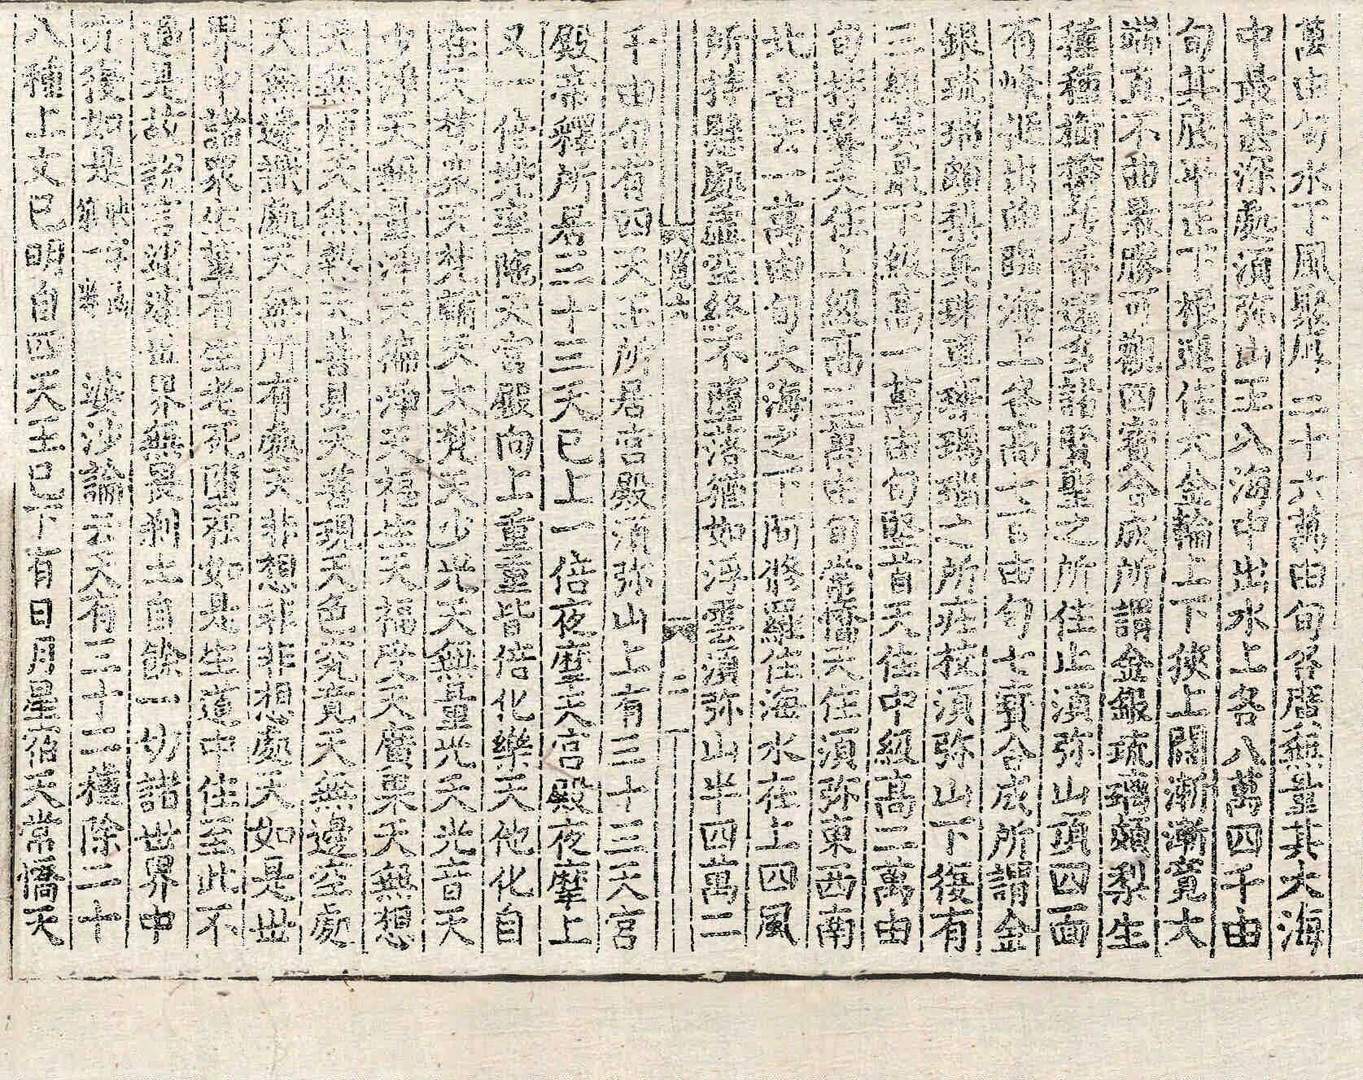 萬由旬水下風聚厚二十六萬由旬各曆無量其大海
中最甚深處湏弥山王入海中出水上各八萬四千由
旬其底平正下根連住大金輪上下狹上闊漸漸寬大
端直不曲最勝可觀四寳合成所謂金銀琉璃頗梨生
種種樹樹木香遠多諸賢聖之所住止湏弥山頂四面
有峰挺出曲臨海上各高七百由旬七寳合成所謂金
銀琉璃頗梨真珠車磲瑪瑙之所莊挍湏弥山下復有
三級其最下級高一萬由旬堅首天住中級高二萬由
旬持鬘天住上級高三萬由旬常憍天住湏弥東西南
北各去一萬由旬大海之下阿修羅住海水在上四風
所持懸處虛空終不墮落猶如浮雲湏弥山半四萬二
覽六 二
千由旬有四天王所居宫殿湏弥山上有三十三天宫
殿帝釋所居三十三天已上一倍夜摩天宫殿夜摩上
又一倍兠率陁天宫殿向上重重皆倍化樂天他化自
在天梵衆天梵輔天大梵天少光天無量光天光音天
少淨天無量淨天徧淨天福生天福受天廣果天無想
天無煩天無熱天善見天善現天色究竟天無邊空處
天無邊識處天無所有處天非想非非想處天如是世
界中諸衆生輩有生老死墮在如是生道中住至此不
過是故說言娑婆世界無畏剎土自餘一切諸世界中
亦復如是 婆沙論云天有三十二種除二十
八種上文已明自四天王已下有日月星宿天常憍天